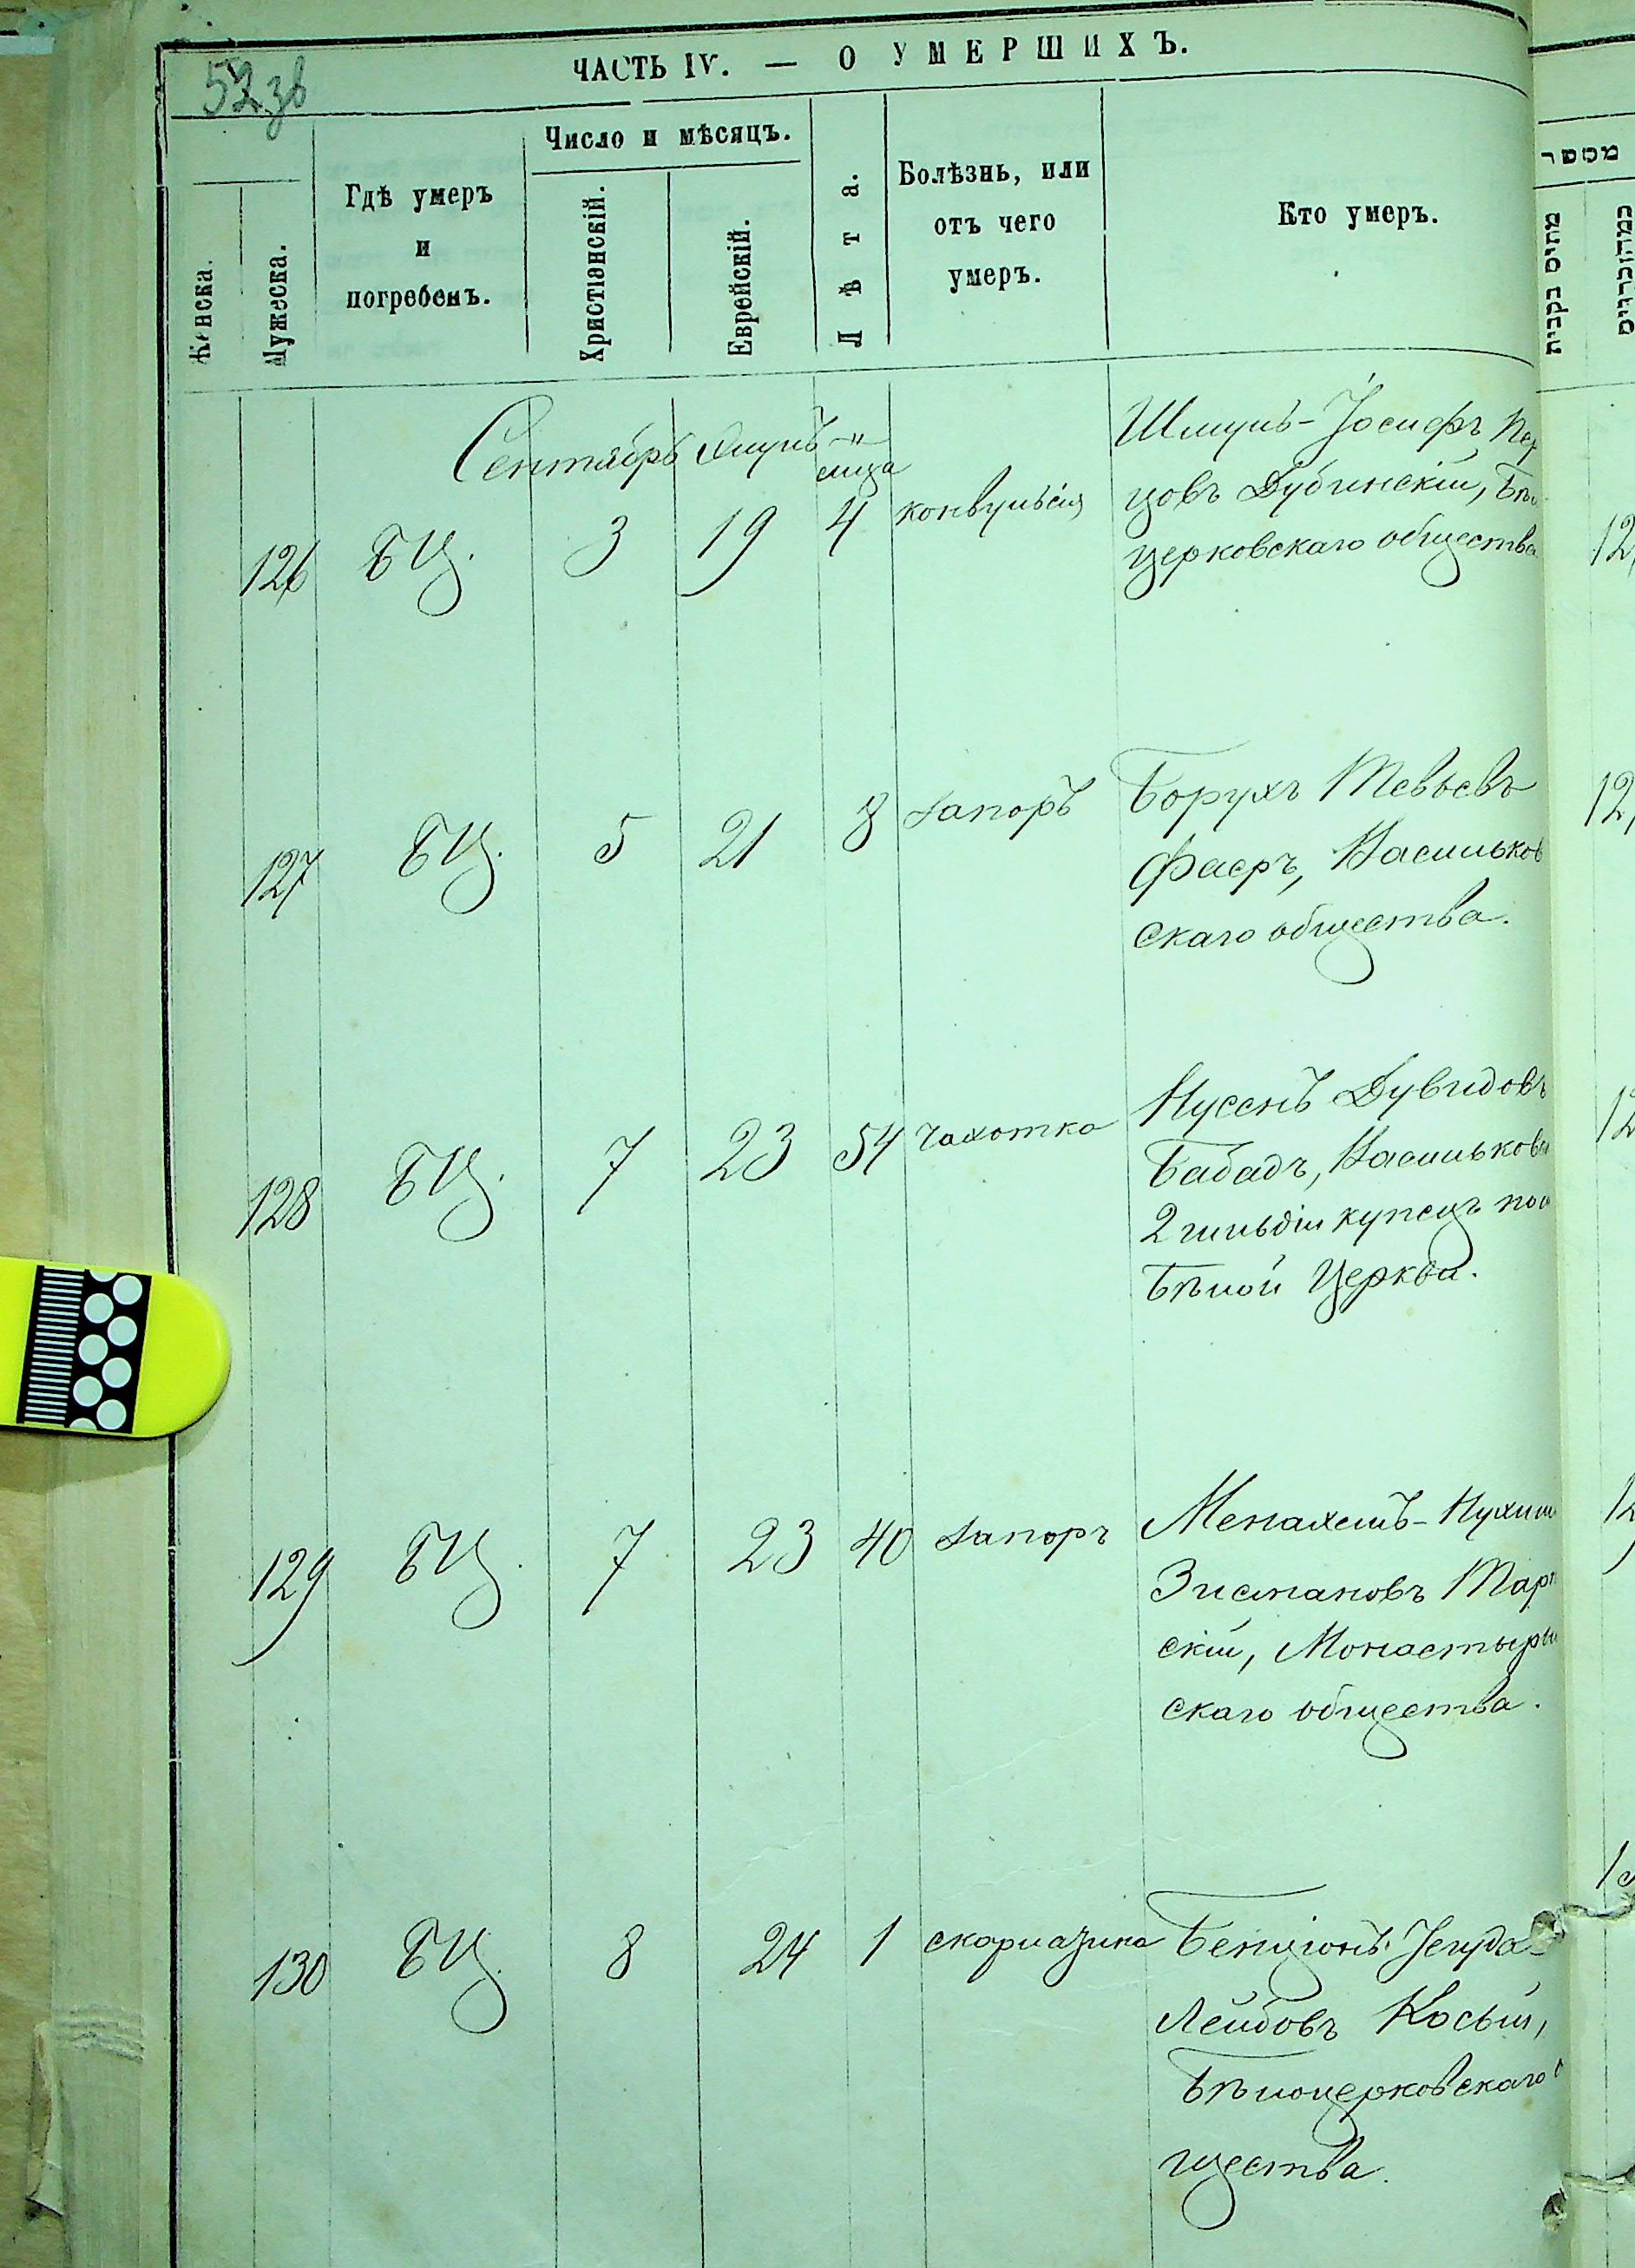 52 зв
ЧАСТЬ IV. — О УМЕРШИХЪ.
Женска.
Мужеска.
Гдѣ умеръ
и
погребенъ.
Число и мѣсяцъ.
Христіянскій.
Еврейскій.
Лѣта.
Болѣзнь, или
отъ чего
умеръ.
Кто умеръ.
מספר
מתים בקבית
כמהוכרויים
Сентябрь Элулъ
126 БЦ. 3 19 4 конвульсія
Шмуль-Іосифъ Пер
цовъ Дубинскій, Бѣ
церковскаго общества
127 БЦ. 5 21 8 запоръ
Борухъ Тевьевъ
Фаеръ, Васильков
скаго общества.
128 БЦ. 7 23 54 чахотка
Нусенъ Дувидовъ
Бабадъ, Васильков
2 гильдіи купецъ
Бѣлой Церкви.
129 БЦ. 7 23 40 запоръ
Менахемъ-Нухим
Зисмановъ Тар
скій, Монастыри
скаго общества.
130 БЦ. 8 24 1 скарлатина
Бенціонъ Іегуда-
Лейбовъ Косый,
Бѣлоцерковскаго о
щества.
12
12
12
12
1